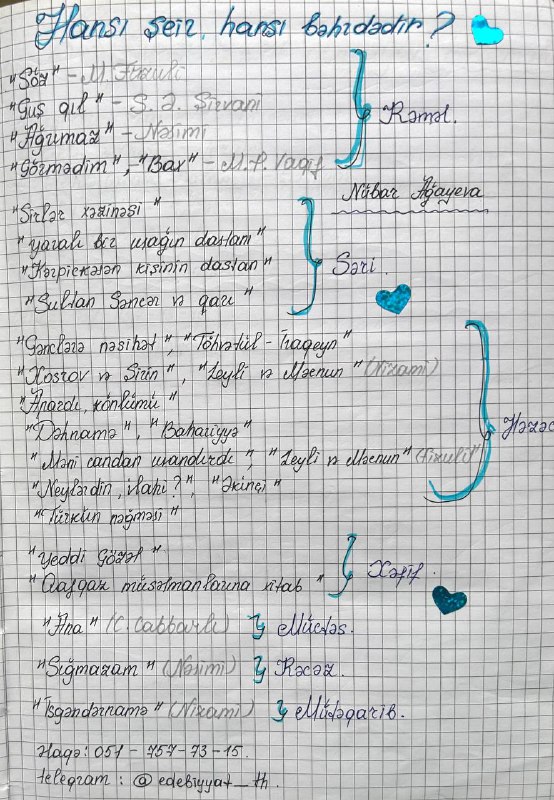 Hansı şeir, hansı bəhrdədir?
"Söz" – M. Füzuli
"Guş qıl" – S. Ə. Şirvani
"Ağrımaz" – Nəsimi
"Görmədim", "Bax" – M. P. Vaqif
Rəməl.
Nübar Ağayeva
"Sirlər xəzinəsi"
"Yaralı bir uşağın dastanı"
"Kərpickəsən kişinin dastanı"
"Sultan Səncər və qarı"
Səri.
"Gənclərə nəsihət", "Töhvətül-İraqeyn"
"Xosrov və Şirin", "Leyli və Məcnun" (Nizami)
"Apardı könlümü"
"Dəhnamə", "Bahariyyə"
"Məni candan usandırdı", "Leyli və Məcnun" (Füzuli)
"Neylərdin, ilahi?", "Əkinçi"
"Türkün nəğməsi"
Həzəc
"Yeddi Gözəl"
"Qafqaz müsəlmanlarına xitab"
Xəfif.
"Ana" (C. Cabbarlı) Müctəs.
"Sığmazam" (Nəsimi) Rəcəz.
"İsgəndərnamə" (Nizami) Mütəqarib.
Əlaqə: 051 – 757-73-15.
telegram: @edebiyyat_th.